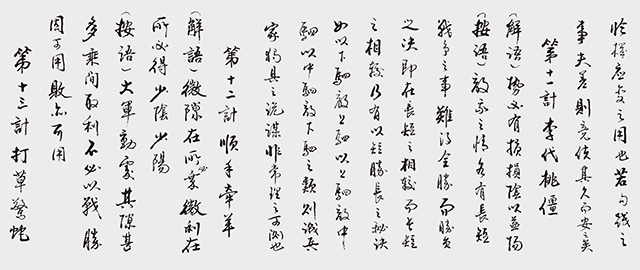 臨機應變之用也若句踐之
事夫差則竟使其久而安之矣
第十一計 李代桃僵
（解語）勢必有損損陰以益陽
（按語）敵我之情各有長短
戰爭之事難得全勝而勝負
之決即在長短之相較而長短
之相較乃有以短勝長之秘訣
如以下駟敵上駟以上駟敵中
駟以中駟敵下駟之類則誠兵
家獨具之詭謀非常理之可測也
第十二計 順手牽羊
（解語）微隙在所必乘微利在
所必得少陰少陽
（按語）大軍動處其隙甚
多乘間取利不必以戰勝
固可用敗亦可用
第十三計 打草驚蛇